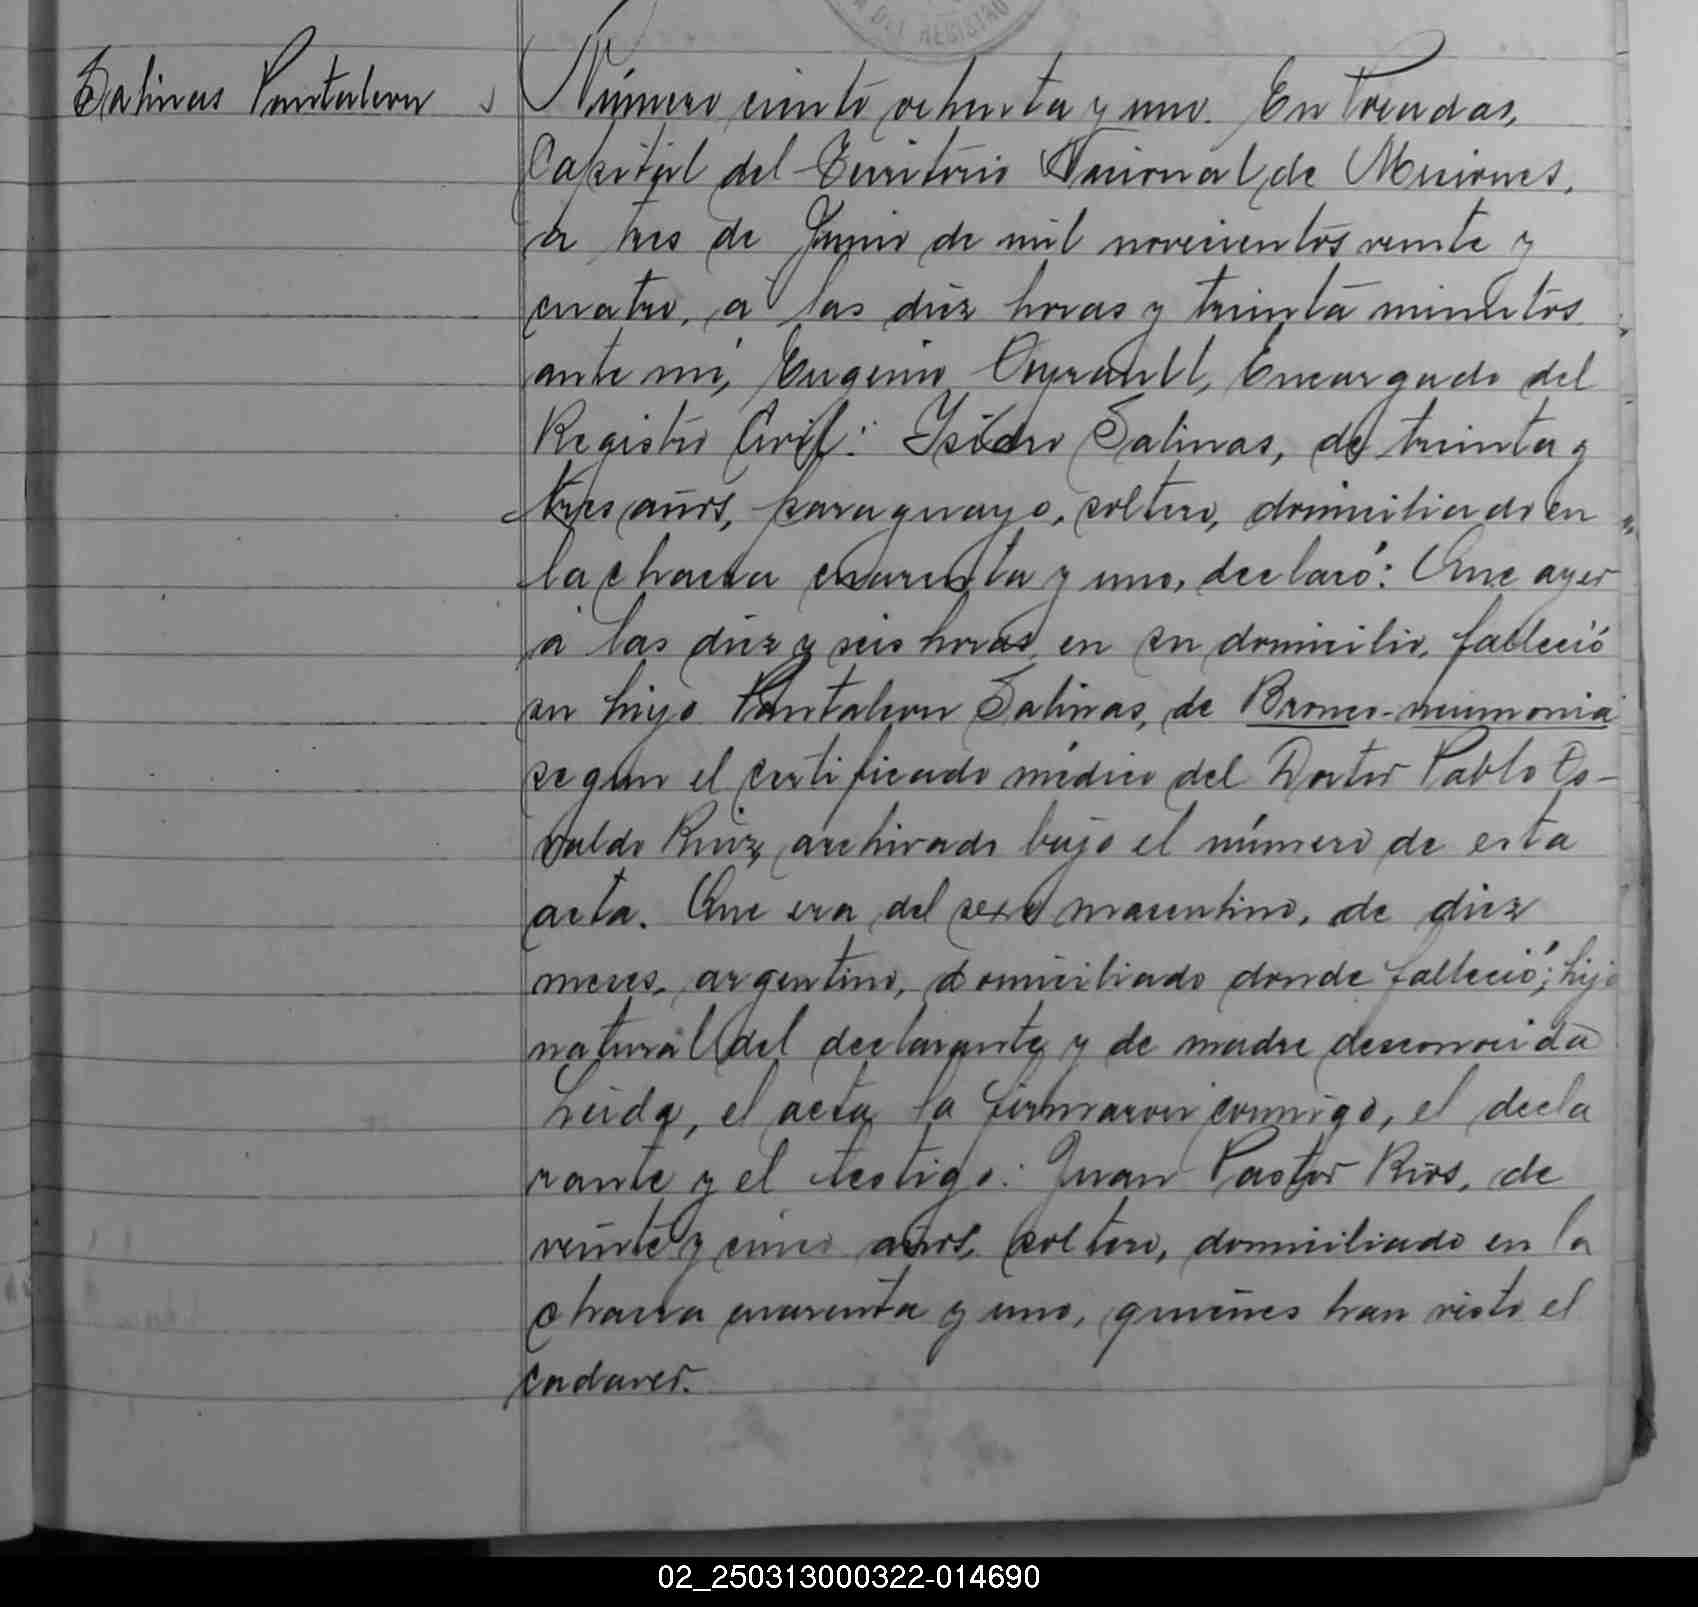 DEL REGISTRO
Salinas Pantaleon
Número ciento ochenta y uno. En Posadas,
Capital del Territorio Nacional de Misiones,
a tres de Junio de mil novecientos veinte y
cuatro, a las diez horas y treinta minutos
ante mí, Eugenio Ayrault, Encargado del
Registro Civil: Isidro Salinas, de treinta y
tres años, paraguayo, soltero, domiciliado en
la chacra cuarenta y uno, declaró: Que ayer
a las diez y seis horas, en su domicilio, falleció
su hijo Pantaleon Salinas, de Bronco-neumonia
segun el certificado médico del Doctor Pablo Os-
valdo Ruiz, archivado bajo el número de esta
acta. Que era del sexo masculino, de diez
meses, argentino, domiciliado donde falleció; hijo
natural del declarante y de madre desconocida
Leida, el acta la firmaron conmigo, el decla
rante y el testigo: Juan Pastor Rios, de
veinte y cinco años, soltero, domiciliado en la
chacra cuarenta y uno, quienes han visto el
cadaver.
02_250313000322-014690